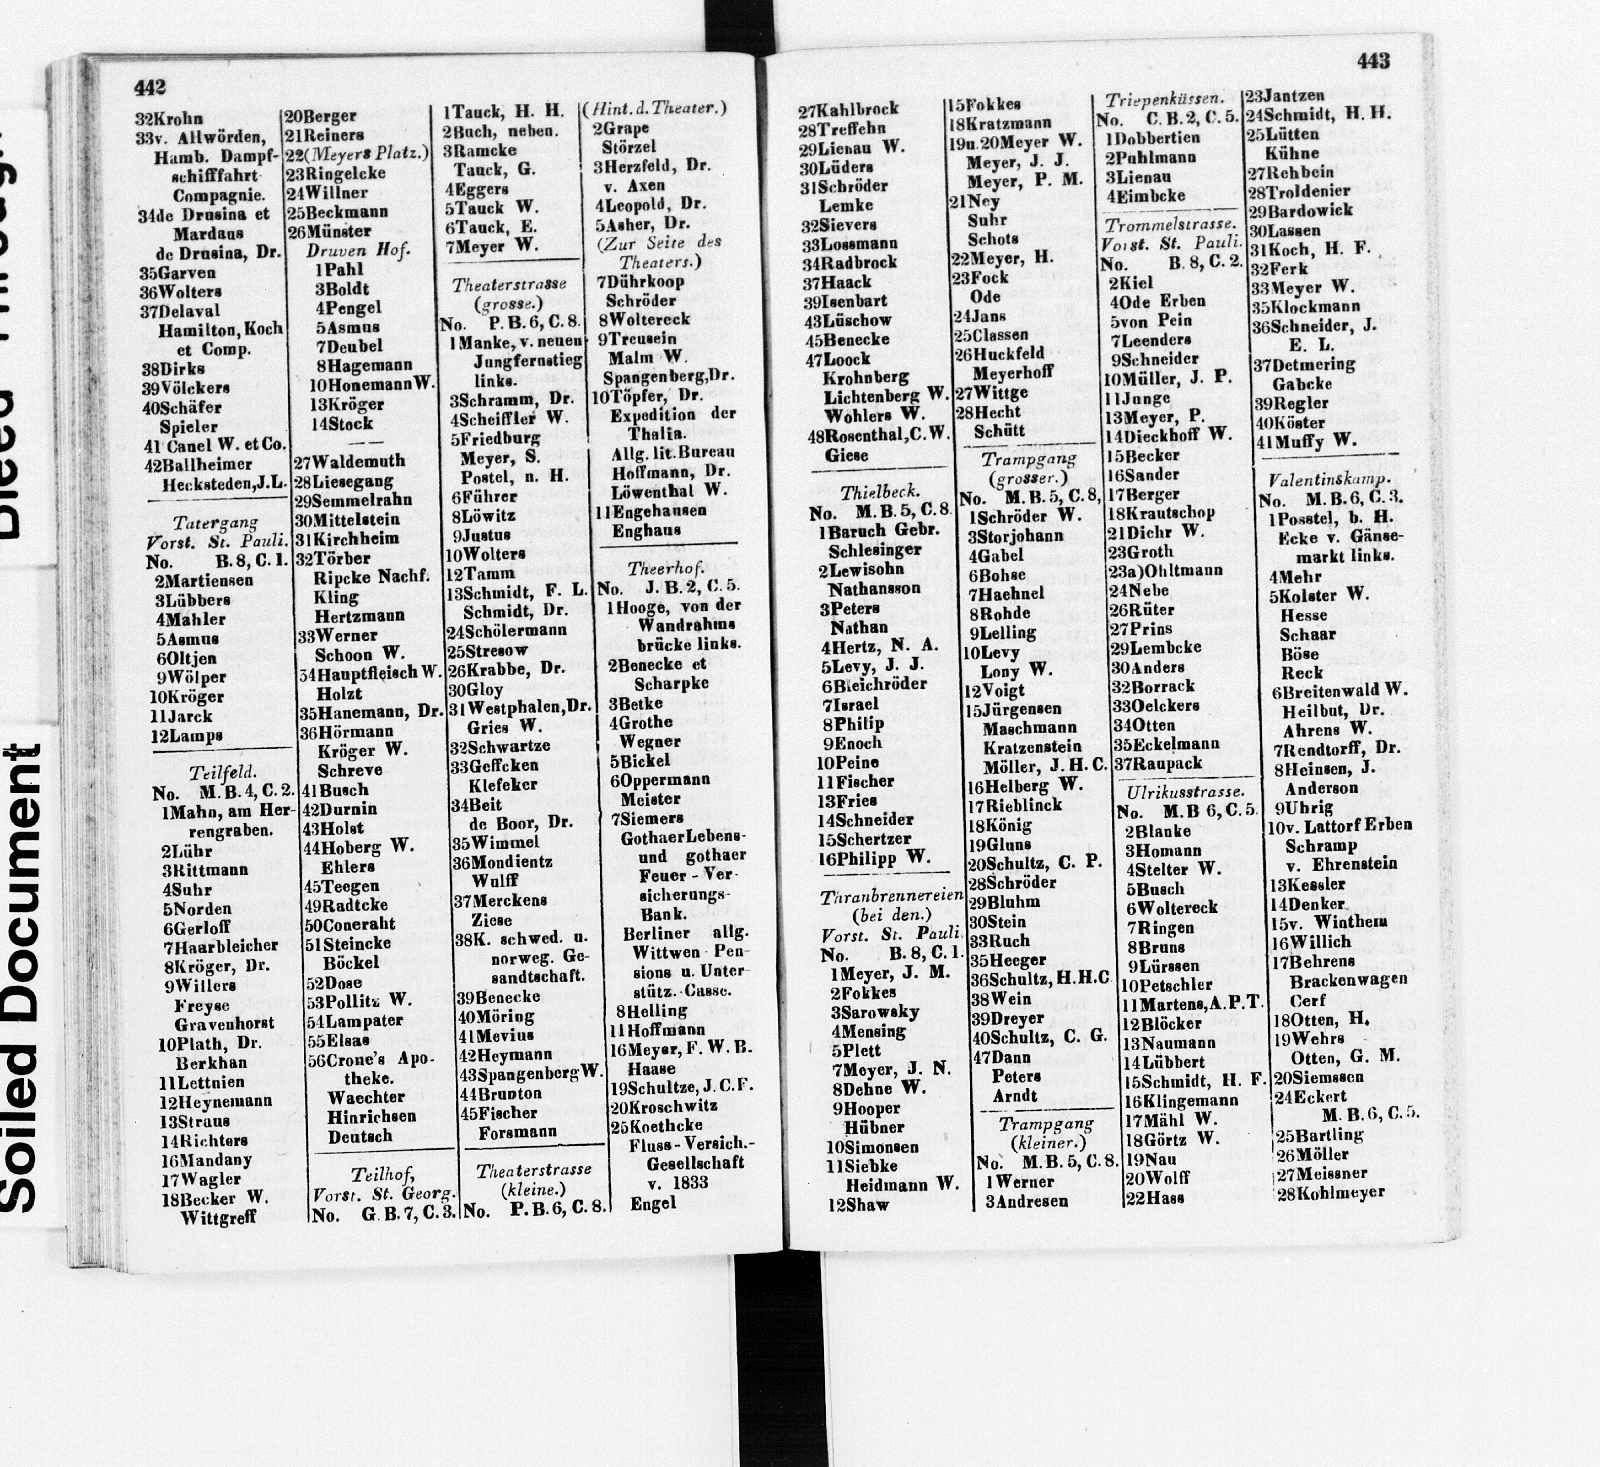 442
32Krohn
33v. Allwörden,
Hamb. Dampf-
schifffahrt
Compagnie.
34de Drusina et
Mardaus
de Drusina, Dr.
35Garven
36Wolters
37Delaval
Hamilton, Koch
et Comp.
38Dirks
39Völckers
40Schäfer
Spieler
41 Canel W. et Co.
42Ballheimer
Hecksteden, J. L.
Tatergang
Vorst. St. Pauli.
No. B. 8, C. 1.
2Martiensen
3Lübbers
4Mahler
5Asmus
6Oltjen
9Wölper
10Kröger
11Jarck
12Lamps
Teilfeld.
No. M. B. 4, C. 2.
1Mahn, am Her-
rengraben.
2Lühr
3Rittmann
4Suhr
5Norden
6Gerloff
7Haarbleicher
8Kröger, Dr.
9Willers
Freyse
Gravenhorst
10Plath, Dr.
Berkhan
11Lettnien
12Heynemann
13Straus
14Richters
16Mandany
17Wagler
18Becker W.
Wittgreff
20Berger
21Reiners
22(Meyers Platz.)
23Ringelcke
24Willner
25Beckmann
26Münster
Druven Hof.
1Pahl
3Boldt
4Pengel
5Asmus
7Deubel
8Hagemann
10Honemann W.
13Kröger
14Stock
27Waldemuth
28Liesegang
29Semmelrahn
30Mittelstein
31Kirchheim
32Törber
Ripcke Nachf.
Kling
Hertzmann
33Werner
Schoon W.
34Hauptfleisch W.
Holzt
35Hanemann, Dr.
36Hörmann
Kröger W.
Schreve
41Busch
42Durnin
43Holst
44Hoberg W.
Ehlers
45Teegen
49Radtcke
50Coneraht
51Steincke
Böckel
52Dose
53Pollitz W.
54Lampater
55Elsas
56Crone's Apo-
theke.
Waechter
Hinrichsen
Deutsch
Teilhof,
Vorst. St. Georg.
No. G. B. 7, C. 3.
1Tauck, H. H.
2Buch, neben.
3Ramcke
Tauck, G.
4Eggers
5Tauck W.
6Tauck, E.
7Meyer W.
Theaterstrasse
(grosse.)
No. P. B. 6, C. 8.
1Manke, v. neuen
Jungfernstieg
links.
3Schramm, Dr.
4Scheiffler W.
5Friedburg
Meyer, S.
Postel, n. H.
6Führer
8Löwitz
9Justus
10Wolters
12Tamm
13Schmidt, F. L.
Schmidt, Dr.
24Schölermann
25Stresow
26Krabbe, Dr.
30Gloy
31Westphalen, Dr.
Gries W.
32Schwartze
33Geffcken
Klefeker
34Beit
de Boor, Dr.
35Wimmel
36Mondientz
Wulff
37Merckens
Ziese
38K. schwed. u.
norweg. Ge-
sandtschaft.
39Benecke
40Möring
41Mevius
42Heymann
43Spangenberg W.
44Brunton
45Fischer
Forsmann
Theaterstrasse
(kleine.)
No. P. B. 6, C. 8.
(Hint. d. Theater.)
2Grape
Störzel
3Herzfeld, Dr.
v. Axen
4Leopold, Dr.
5Asher, Dr.
(Zur Seite des
Theaters.)
7Dührkoop
Schröder
8Woltereck
9Treusein
Malm W.
Spangenberg, Dr.
10Töpfer, Dr.
Expedition der
Thalia.
Allg. lit. Bureau
Hoffmann, Dr.
Löwenthal W.
11Engehausen
Enghaus
Theerhof.
No. J. B. 2, C. 5.
1Hooge, von der
Wandrahms
brücke links.
2Benecke et
Scharpke
3Betke
4Grothe
Wegner
5Bickel
6Oppermann
Meister
7Siemers
Gothaer Lebens-
und gothaer
Feuer-Ver-
sicherungs-
Bank.
Berliner allg.
Wittwen Pen-
sions u. Unter-
stütz.-Casse.
8Helling
11Hoffmann
16Meyer, F. W. B.
Haase
19Schultze, J. C. F.
20Kroschwitz
25Koethcke
Fluss-Versich.-
Gesellschaft
v. 1833
Engel
443
27Kahlbrock
28Treffehn
29Lienau W.
30Lüders
31Schröder
Lemke
32Sievers
33Lossmann
34Radbrock
37Haack
39Isenbart
43Lüschow
45Benecke
47Loock
Krohnberg
Lichtenberg W.
Wohlers W.
48Rosenthal, C. W.
Giese
Thielbeck.
No. M. B. 5, C. 8.
1Baruch Gebr.
Schlesinger
2Lewisohn
Nathansson
3Peters
Nathan
4Hertz, N. A.
5Levy, J. J.
6Bleichröder
7Israel
8Philip
9Enoch
10Peine
11Fischer
13Fries
14Schneider
15Schertzer
16Philipp W.
Thranbrennereien
(bei den.)
Vorst. St. Pauli.
No. B. 8, C. 1.
1Meyer, J. M.
2Fokkes
3Sarowsky
4Mensing
5Plett
7Meyer, J. N.
8Dehne W.
9Hooper
Hübner
10Simonsen
11Siebke
Heidmann W.
12Shaw
15Fokkes
18Kratzmann
19u. 20Meyer W.
Meyer, J. J.
Meyer, P. M.
21Ney
Suhr
Schots
22Meyer, H.
23Fock
Ode
24Jans
25Classen
26Huckfeld
Meyerhoff
27Wittge
28Hecht
Schütt
Trampgang
(grosser.)
No. M. B. 5, C. 8,
1Schröder W.
3Storjohann
4Gabel
6Bohse
7Haehnel
8Rohde
9Lelling
10Levy
Lony W.
12Voigt
15Jürgensen
Maschmann
Kratzenstein
Möller, J. H. C.
16Helberg W.
17Rieblinck
18König
19Gluns
20Schultz, C. P.
28Schröder
29Bluhm
30Stein
33Ruch
35Heeger
36Schultz, H. H. C
38Wein
39Dreyer
40Schultz, C. G.
47Dann
Peters
Arndt
Trampgang
(kleiner.)
No. M. B. 5, C. 8.
1Werner
3Andresen
Triepenküssen.
No. C. B. 2, C. 5.
1Dobbertien
2Puhlmann
3Lienau
4Eimbcke
Trommelstrasse.
Vorst. St. Pauli.
No. B. 8, C. 2.
2Kiel
4Ode Erben
5von Pein
7Leenders
9Schneider
10Müller, J. P.
11Junge
13Meyer, P.
14Dieckhoff W.
15Becker
16Sander
17Berger
18Krautschop
21Dichr W.
23Groth
23a)Ohltmann
24Nebe
26Rüter
27Prins
29Lembcke
30Anders
32Borrack
33Oelckers
34Otten
35Eckelmann
37Raupack
Ulrikusstrasse.
No. M. B 6, C. 5.
2Blanke
3Homann
4Stelter W.
5Busch
6Woltereck
7Ringen
8Bruns
9Lürssen
10Petschler
11Martens, A. P. T.
12Blöcker
13Naumann
14Lübbert
15Schmidt, H. F.
16Klingemann
17Mähl W.
18Görtz W.
19Nau
20Wolff
22Hass
23Jantzen
24Schmidt, H. H.
25Lütten
Kühne
27Rehbein
28Troldenier
29Bardowick
30Lassen
31Koch, H. F.
32Ferk
33Meyer W.
35Klockmann
36Schneider, J.
E. L.
37Detmering
Gabcke
39Regler
40Köster
41Muffy W.
Valentinskamp.
No. M. B. 6, C. 3.
1Posstel, b. H.
Ecke v. Gänse-
markt links.
4Mehr
5Kolster W.
Hesse
Schaar
Böse
Reck
6Breitenwald W.
Heilbut, Dr.
Ahrens W.
7Rendtorff, Dr.
8Heinsen, J.
Anderson
9Uhrig
10v. Lattorf Erben
Schramp
v. Ehrenstein
13Kessler
14Denker
15v. Winthem
16Willich
17Behrens
Brackenwagen
Cerf
18Otten, H.
19Wehrs
Otten, G. M.
20Siemssen
24Eckert
M. B. 6, C. 5.
25Bartling
26Möller
27Meissner
28Kohlmeyer
Soiled Document